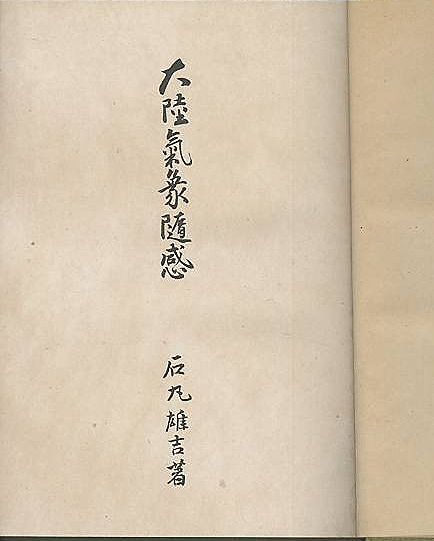 大陸氣象隨感
石丸雄吉著